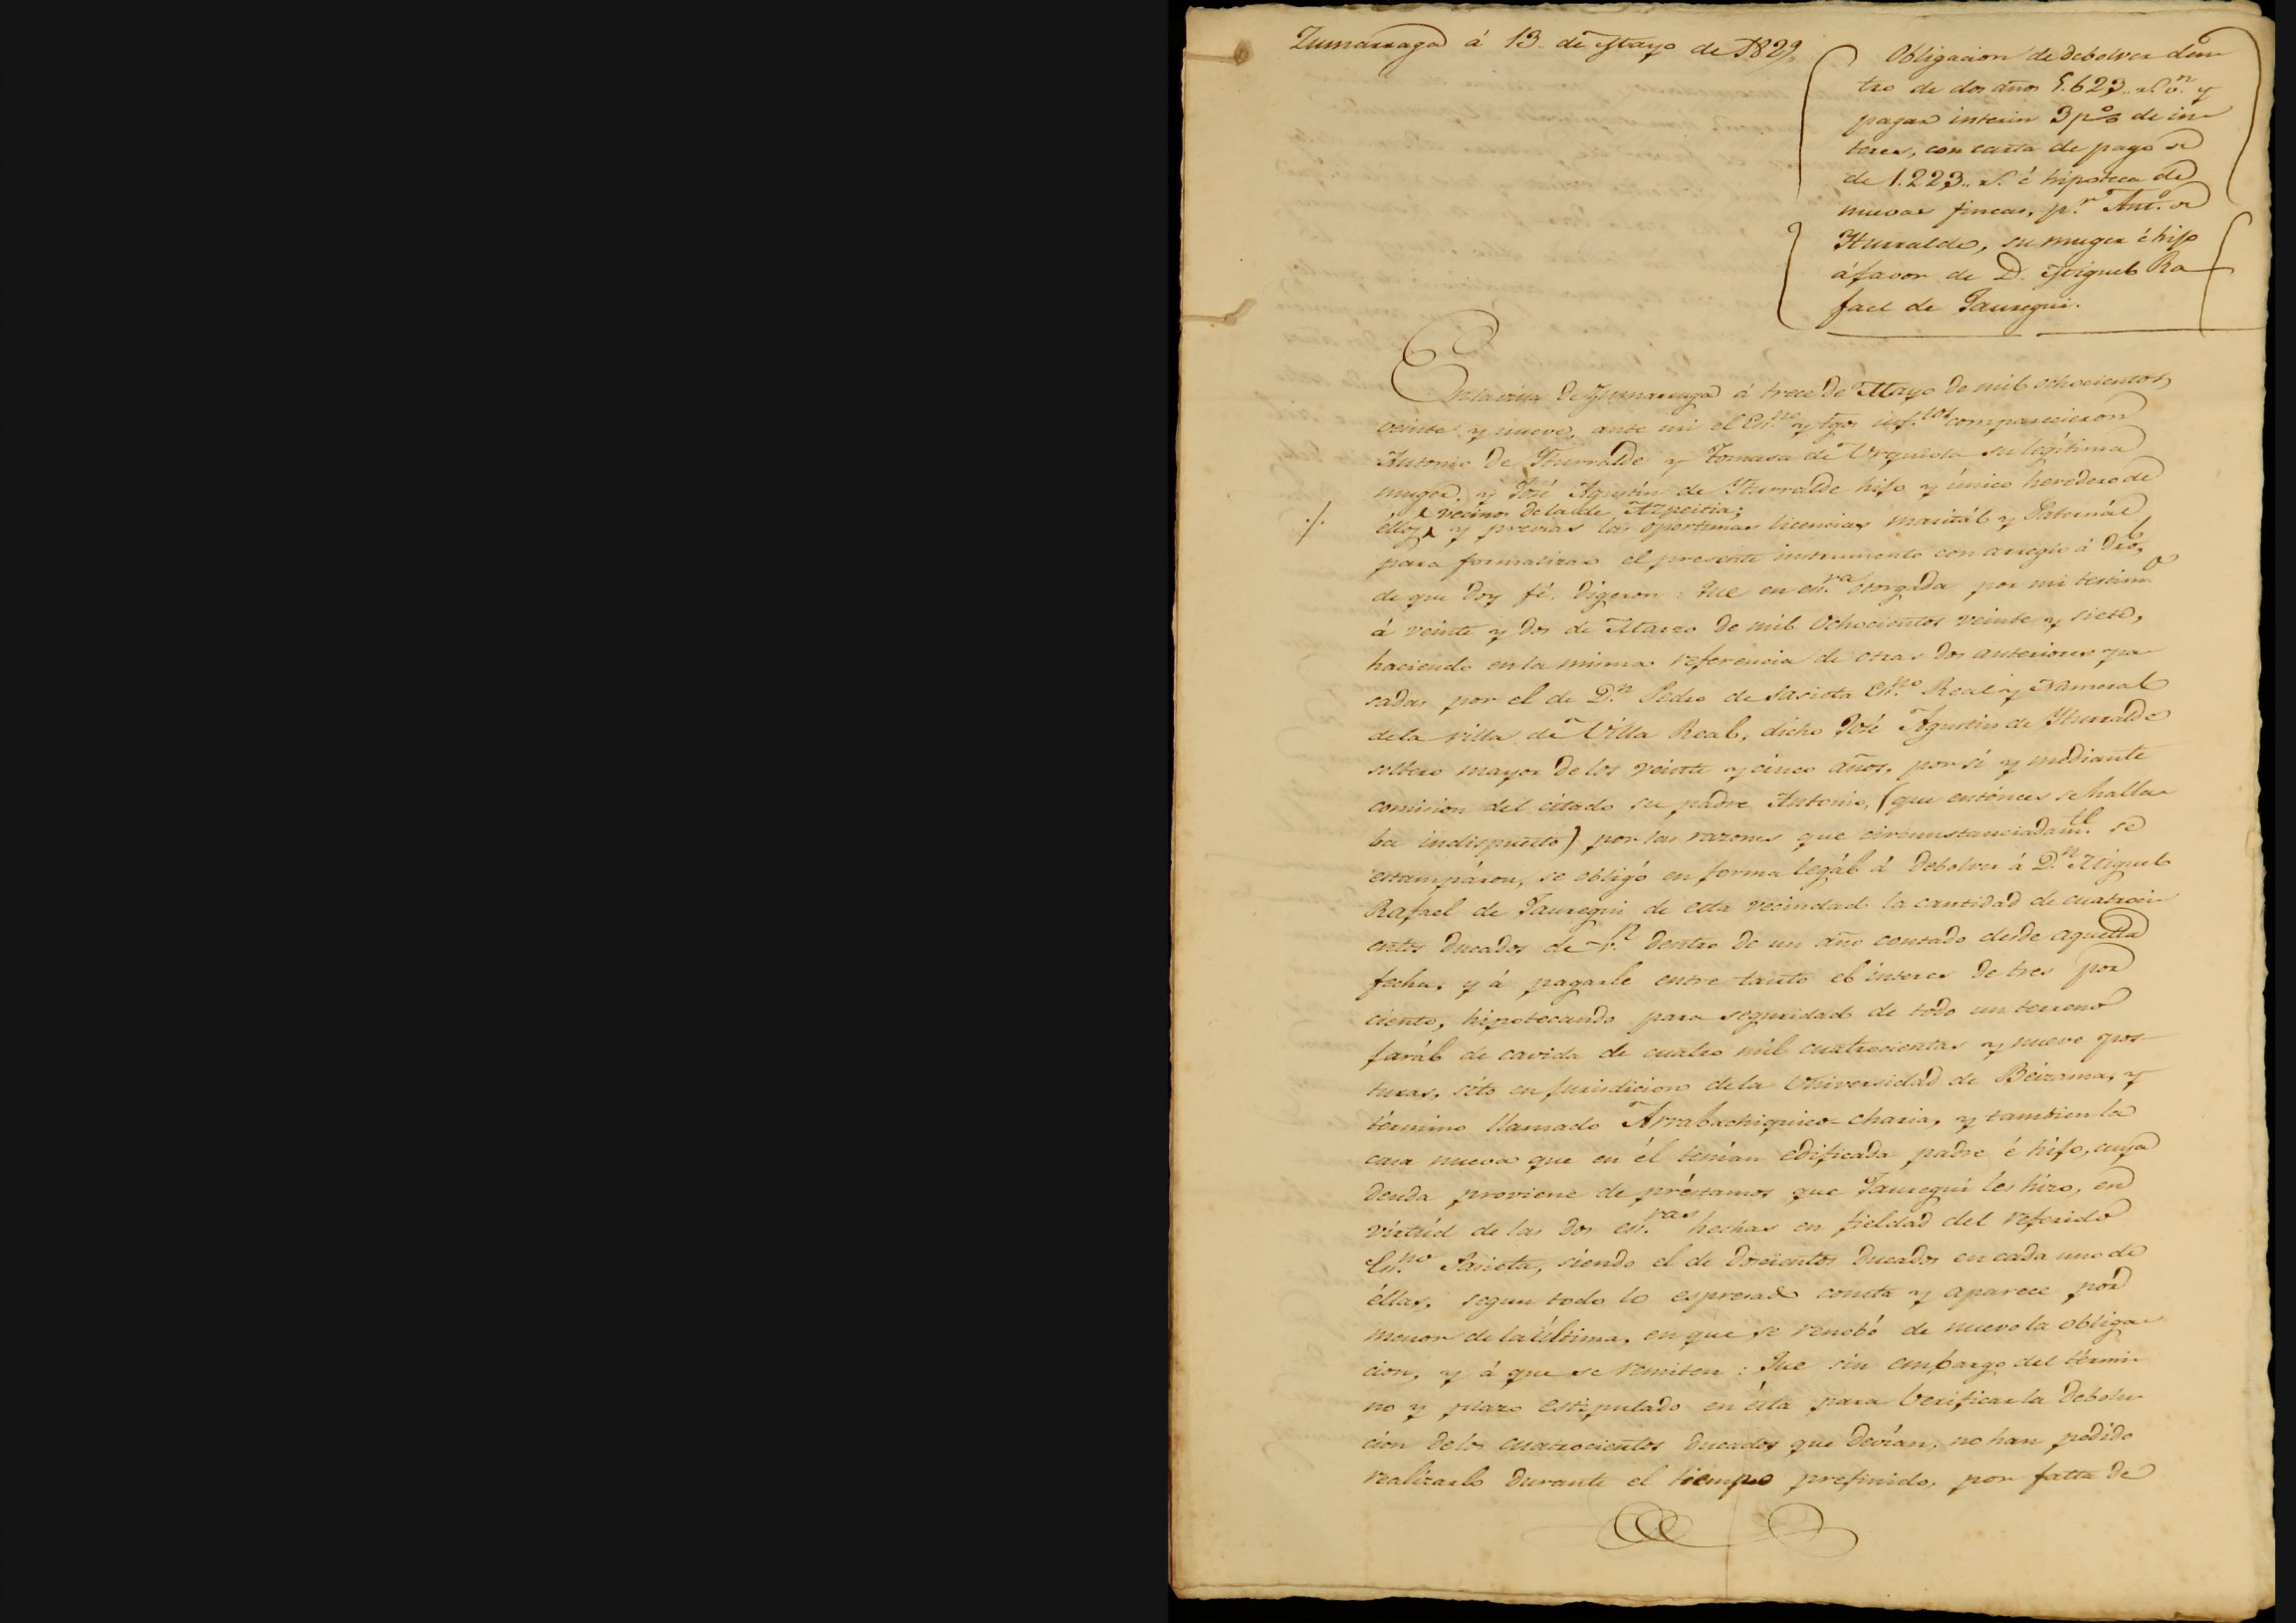 Zumarraga á 13. de Mayo de 1829.
Obligacion de debolver den
tro de dos años 5.623.. rs. vn. y
pagar interin 3 p% de in
teres, con carta de pago
de 1.223.. rs. é hipoteca de
nuevas fincas, pr. Anto. de
Yturralde, su muger é hijo
á favor de D. Miguel Ra
fael de Jauregui.
En la villa de Zumarraga á trece de Mayo de mil ochocientos
veinte y nueve, ante mi el Esno. y tgos. infos. comparecieron
Antonio de Yturralde y Tomasa de Urquiola su legítima
muger, y José Agustin de Yturralde hijo y único heredero de
vecinos de la de Azpeitia;
éllos, y previas las oportunas licencias maritál y Paternál
para formalizar el presente instrumento con arreglo á dro,
de que doy fé. Digeron: Que en esra. otorgada por mi testimo
á veinte y dos de Marzo de mil ochocientos veinte y siete,
haciendo en la misma referencia de otras dos anteriores pa
sadas por el de Dn. Pedro de Sasieta Esno. Real y Numeral
de la villa de Villa Real, dicho José Agustin de Yturralde
soltero mayor de los veinte y cinco años, por sí y mediante
comision del citado su padre Antonio, (que entónces se halla
ba indispuesto) por las razones que circunstanciadamte. se
estampáron, se obligó en forma legál á debolver á Dn. Miguel
Rafael de Jauregui de esta vecindad la cantidad de cuatroci
entos ducados de vn. dentro de un año contado desde aquella
fecha, y á pagarle entre tanto el interes de tres por
ciento, hipotecando para seguridad de todo un terreno
jarál de cavida de cuatro mil cuatrocientas y nueve pos
turas, sito en jurisdicion de la Universidad de Beizama, y
término llamado Arrabachiquico-charia, y tambien la
casa nueva que en él tenían edificada padre é hijo, cuya
deuda proviene de préstamos que Jauregui les hizo, en
virtúd de las dos esras. hechas en fieldad del referido
Esno. Sasieta, siendo el de doscientos ducados en cada uno de
éllas, segun todo lo espresado consta y aparece por
menor de la última, en que se renobó de nuevo la obliga
cion, y á que se remiten: Que sin embargo del térmi
no y plazo estipulado en ésta para verificar la debolu
cion de los cuatrocientos ducados que devían, no han podido
realizarlo durante el tiempo prefinido, por falta de